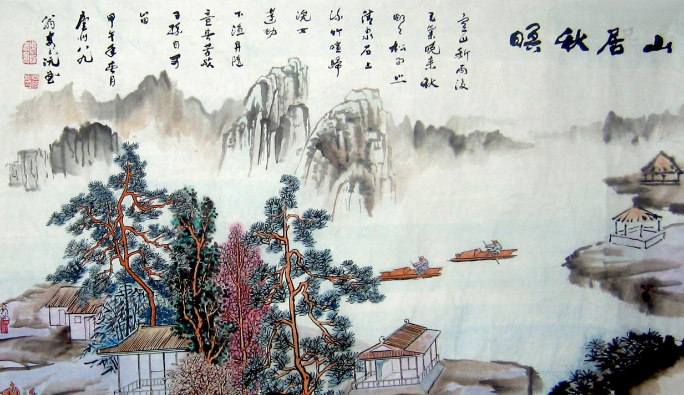 山居秋暝
空山新雨後
天氣晚来秋
明月松间照
清泉石上
流竹喧歸
浣女
莲动
下渔舟随
意春芳歇
王孫自可
留
甲午年月
州八九
翁